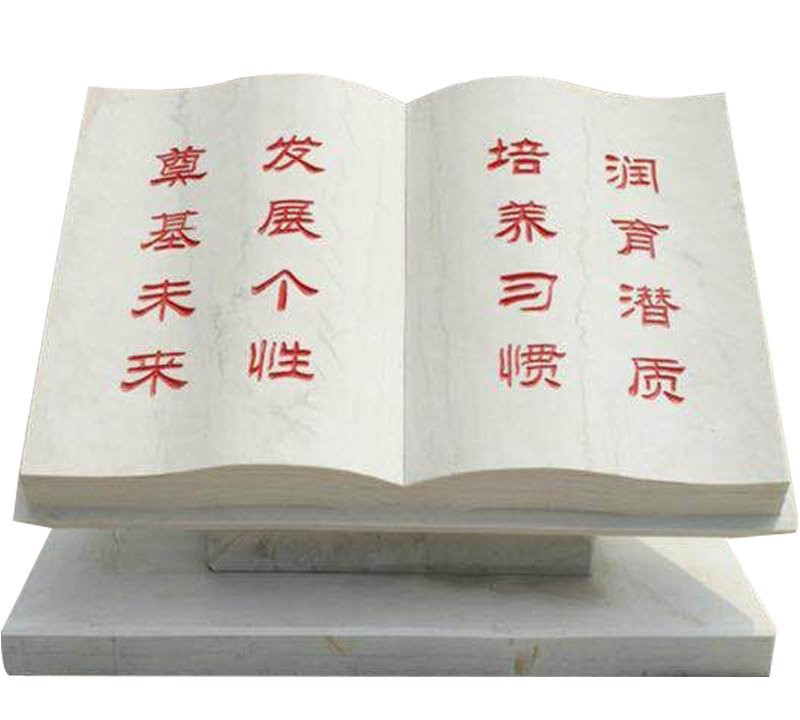 润育潜质
培养习惯
发展个性
奠基未来